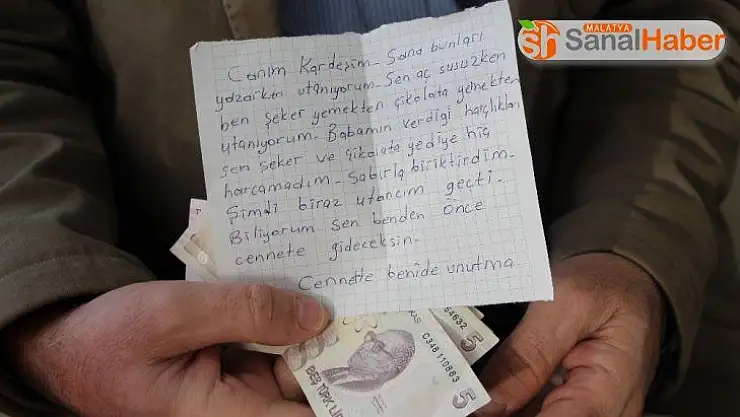 MALATYA
SH SanalHaber
Canım Kardeşim - Sana bunları
yazarken utanıyorum - Sen aç susuzken
ben şeker yemekten çikolata yemekten
utanıyorum - Babamın verdiği harçlıkları
sen şeker ve çikolata yediye hiç
harcamadım - Sabırla biriktirdim -
Şimdi biraz utancım geçti -
Biliyorum sen benden Önce
cennete gideceksin -
Cennette benide unutma
54632 5
C348 110863
BEŞ TÜRK LİRASI
5